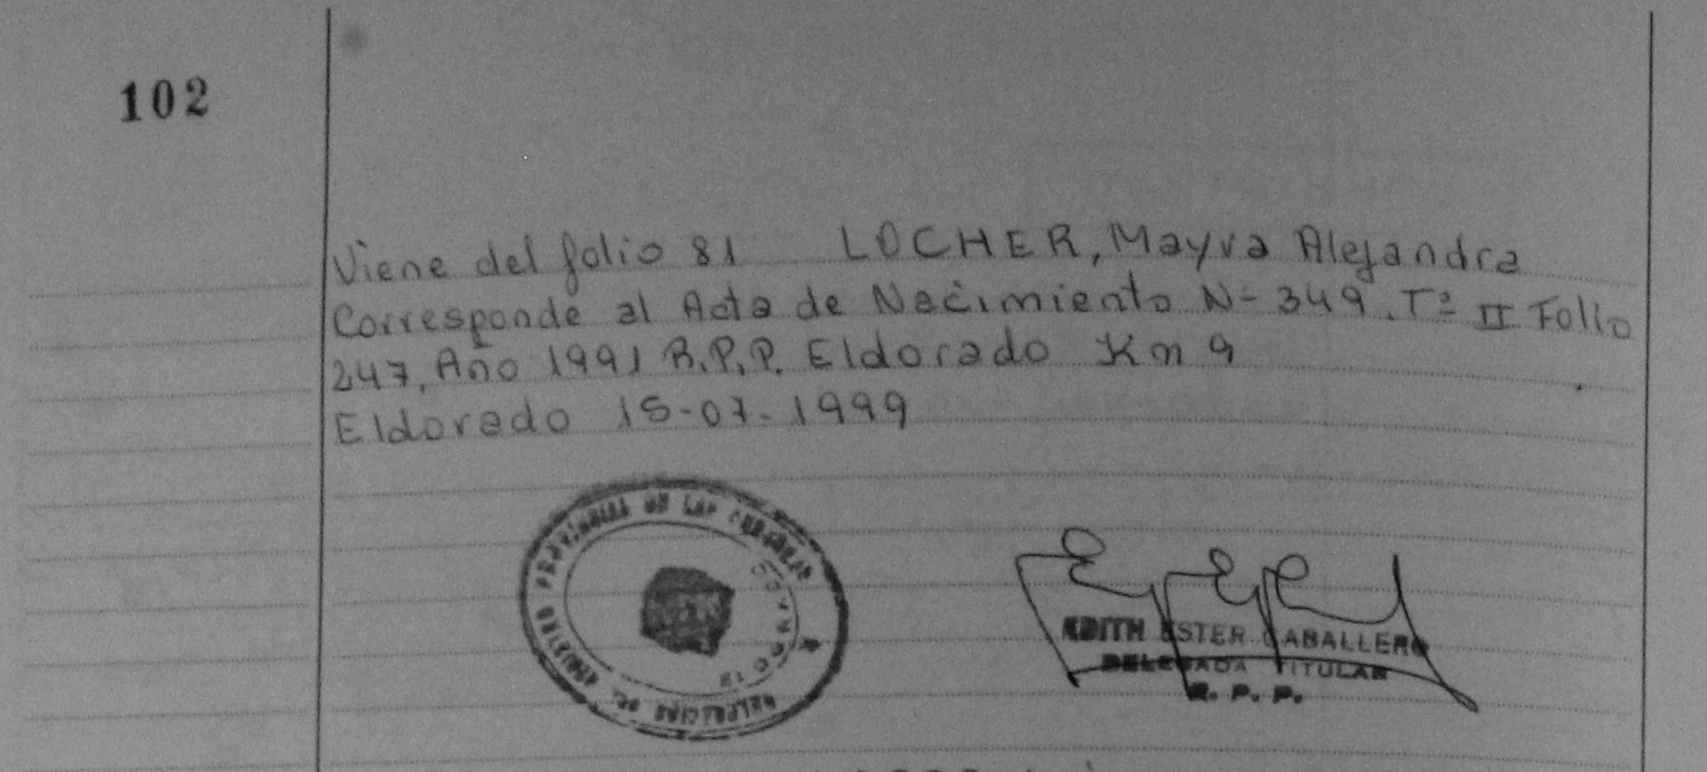 102
Viene del folio 81 LOCHER, Mayra Alejandra
Corresponde al Acta de Nacimiento N= 349. Tº II Folio
247, Año 1991 R.P.P. Eldorado Km 9
Eldorado 15-07-1999
PROVINCIAL DE LAS PERSONAS
ELDORADO
EDITH ESTER CABALLERO
DELEGADA TITULAR
R. P. P.